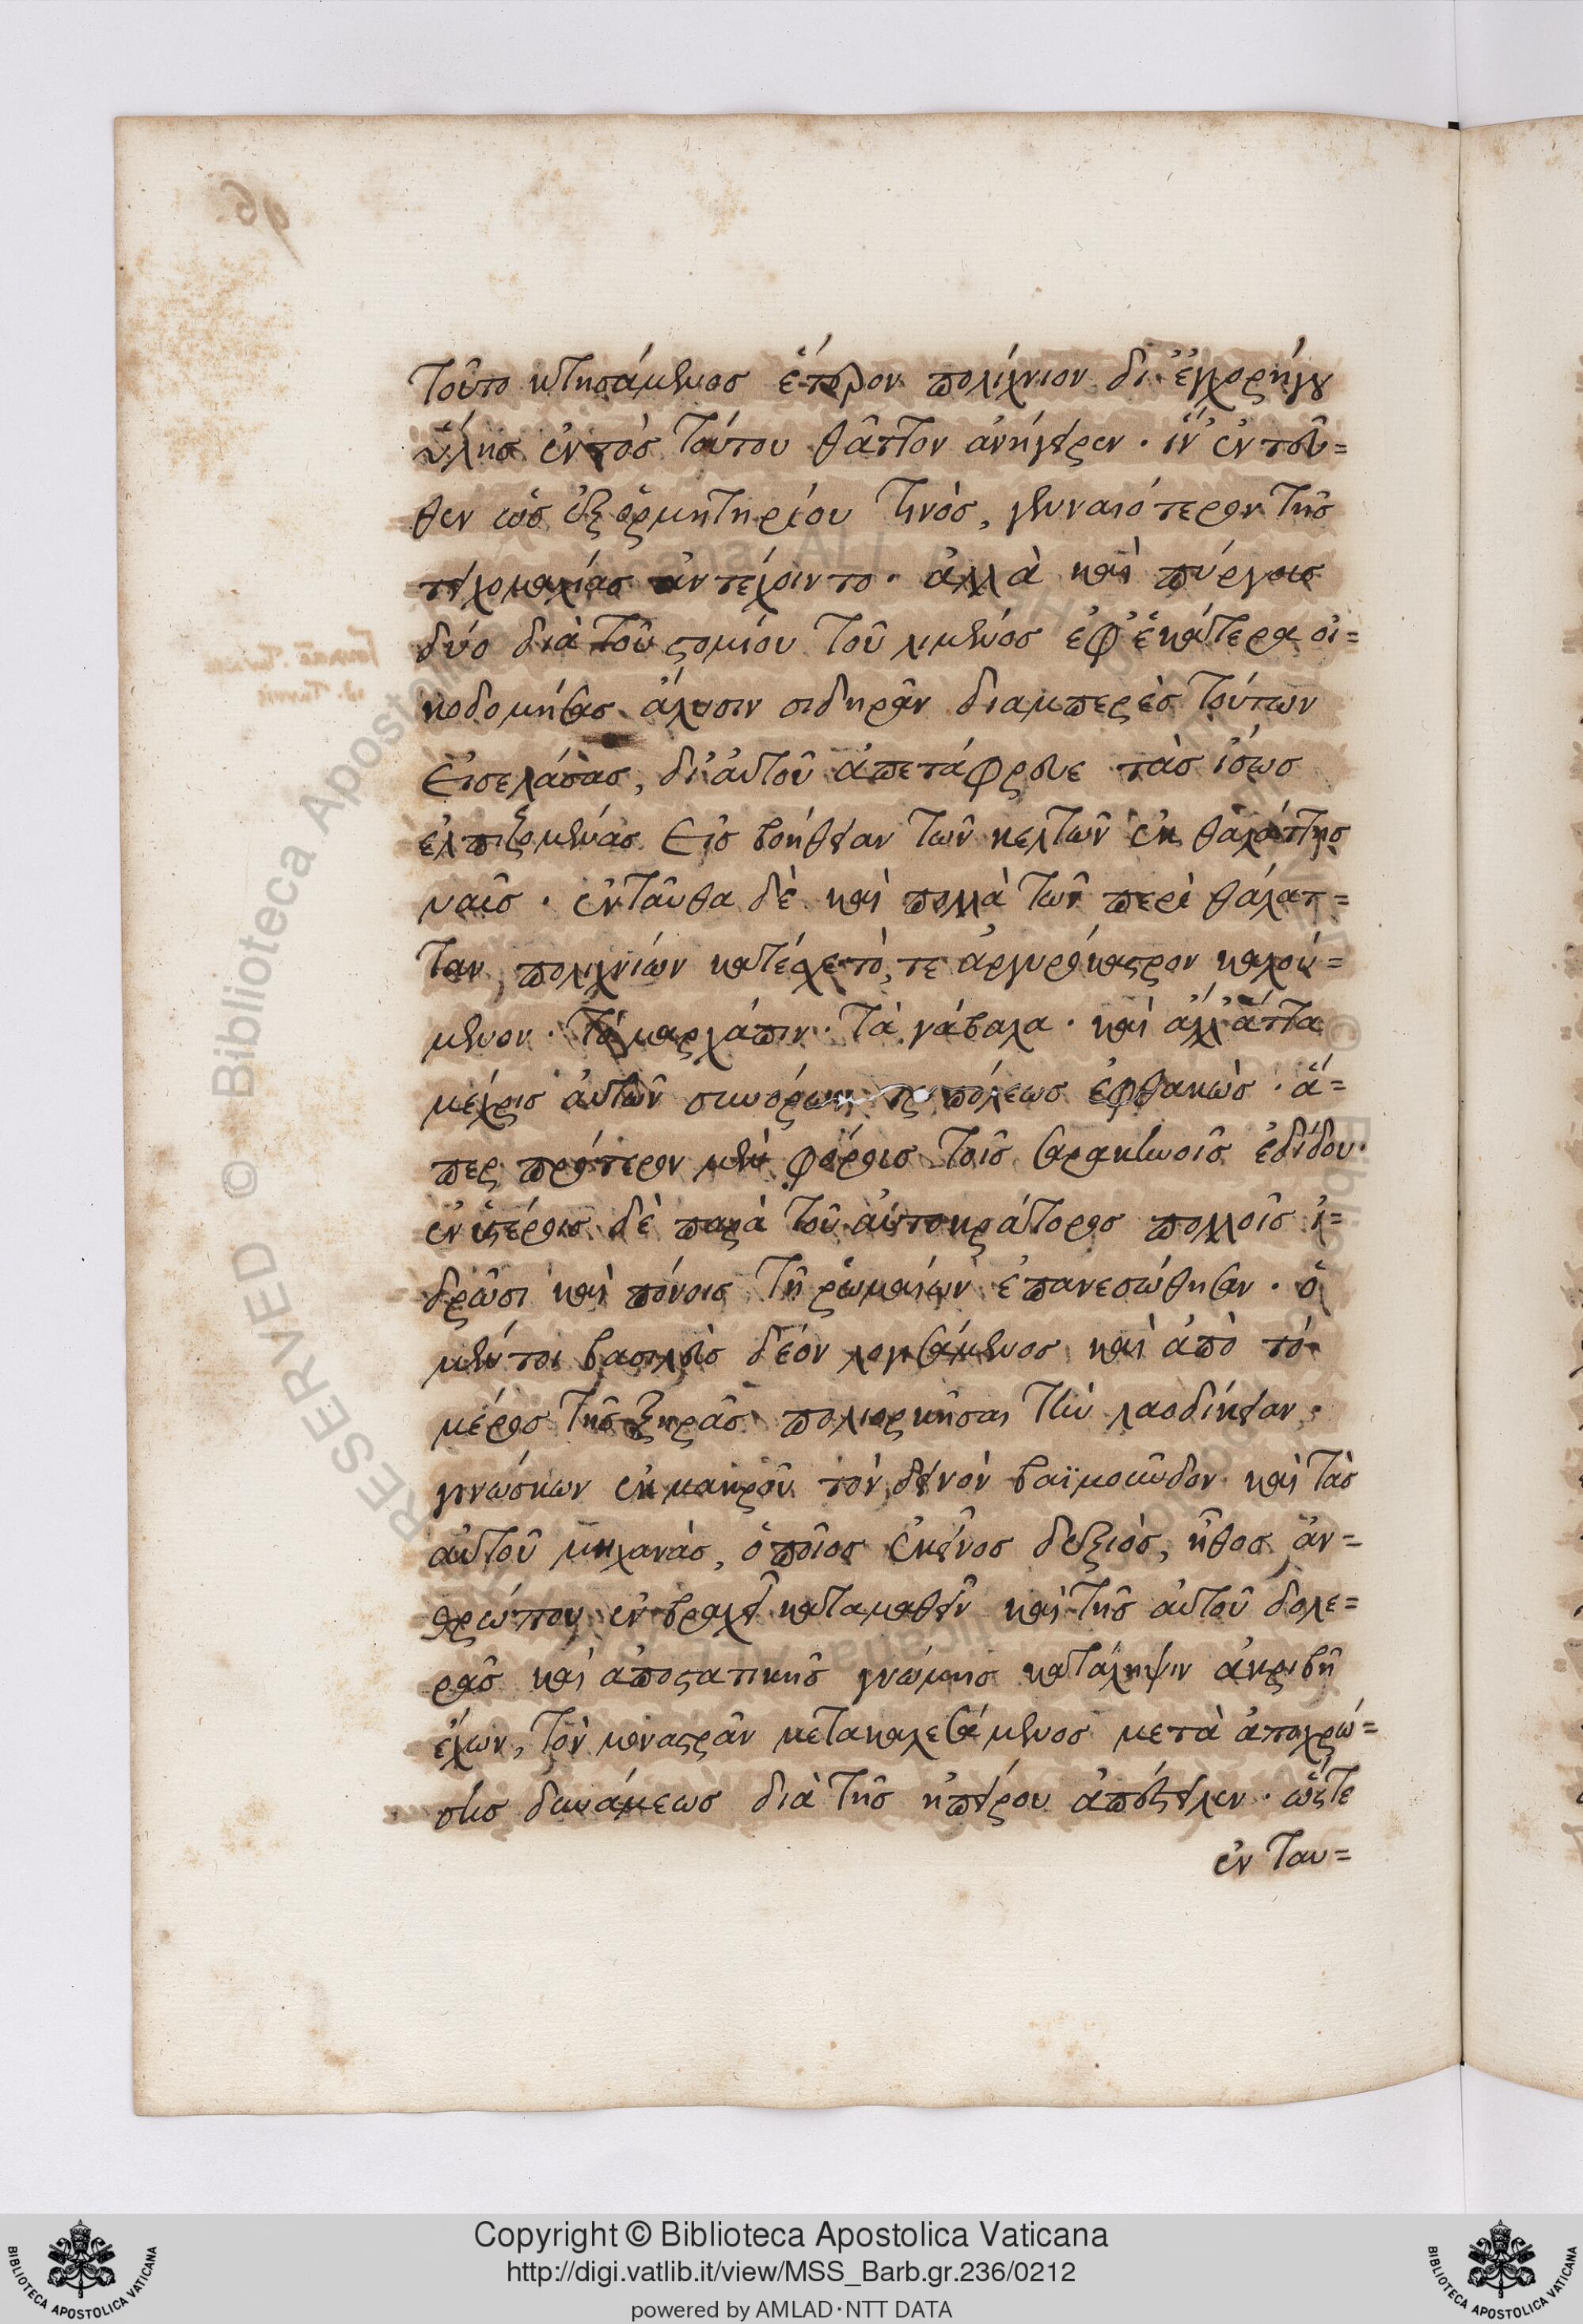 τοῦτο κτησάμενος ἕτερον πολίχνιον δι' ἐγχορήγου
ὕλης ἐντὸς τούτου θᾶττον ἀνήγειρεν· ἵν' ἐντεῦ=
θεν ὡς ἐξ ὁρμητηρίου τινὸς, γενναιότερον τῆς
τειχομαχίας ἀντέχοιντο· ἀλλὰ καὶ πύργοις
δύο διὰ τοῦ στομίου τοῦ λιμένος ἐφ' ἑκάτερα οἰ=
κοδομήσας ἅλυσιν σιδηρᾶν διαμπερὲς τούτων
εἰσελάσας, δι' αὐτοῦ ἀπετάφρευε τὰς ἴσως
ἐλπιζομένας εἰς βοήθειαν τῶν κελτῶν ἐκ θαλάττης
ναῦς· ἐνταῦθα δὲ καὶ πολλὰ τῶν περὶ θάλατ=
ταν πολιχνίων κατέσχε τό, τε ἀργυρόκαστρον καλού=
μενον· τὸ μαρχάπιν· τὰ γάβαλα· καὶ ἀλλ' ἄττα
μέχρις αὐτῶν συνόρων τριπόλεως ἐφθακὼς· ἅ=
περ πρότερον μὲν φόρους τοῖς σαρακηνοῖς ἐδίδου·
ἐν ὑστέροις δὲ παρὰ τοῦ αὐτοκράτορος πολλοῖς ἱ=
δρῶσι καὶ πόνοις τῇ ῥωμαίων ἐπανεσώθησαν· ὁ
μέντοι βασιλεὺς δέον λογισάμενος καὶ ἀπὸ τὸ
μέρος τῆς ξηρᾶς πολιορκῆσαι τὴν λαοδίκειαν·
γινώσκων ἐκ μακροῦ τὸν δεινὸν βαϊμοῦνδον καὶ τὰς
αὐτοῦ μηχανὰς, ὁποῖος ἐκεῖνος δεξιὸς, ἦθος ἀν=
θρώπου ἐν βραχεῖ καταμαθεῖν καὶ τῆς αὐτοῦ δολε=
ρᾶς καὶ ἀποστατικῆς γνώμης κατάληψιν ἀκριβῆ
ἔχων, τὸν μοναστρᾶν μετακαλεσάμενος μετὰ ἀποχρώ=
σης δυνάμεως διὰ τῆς ἠπείρου ἀπέστειλεν· ὥστε
ἐν ταυ=
Copyright © Biblioteca Apostolica Vaticana
http://digi.vatlib.it/view/MSS_Barb.gr.236/0212
powered by AMLAD·NTT DATA